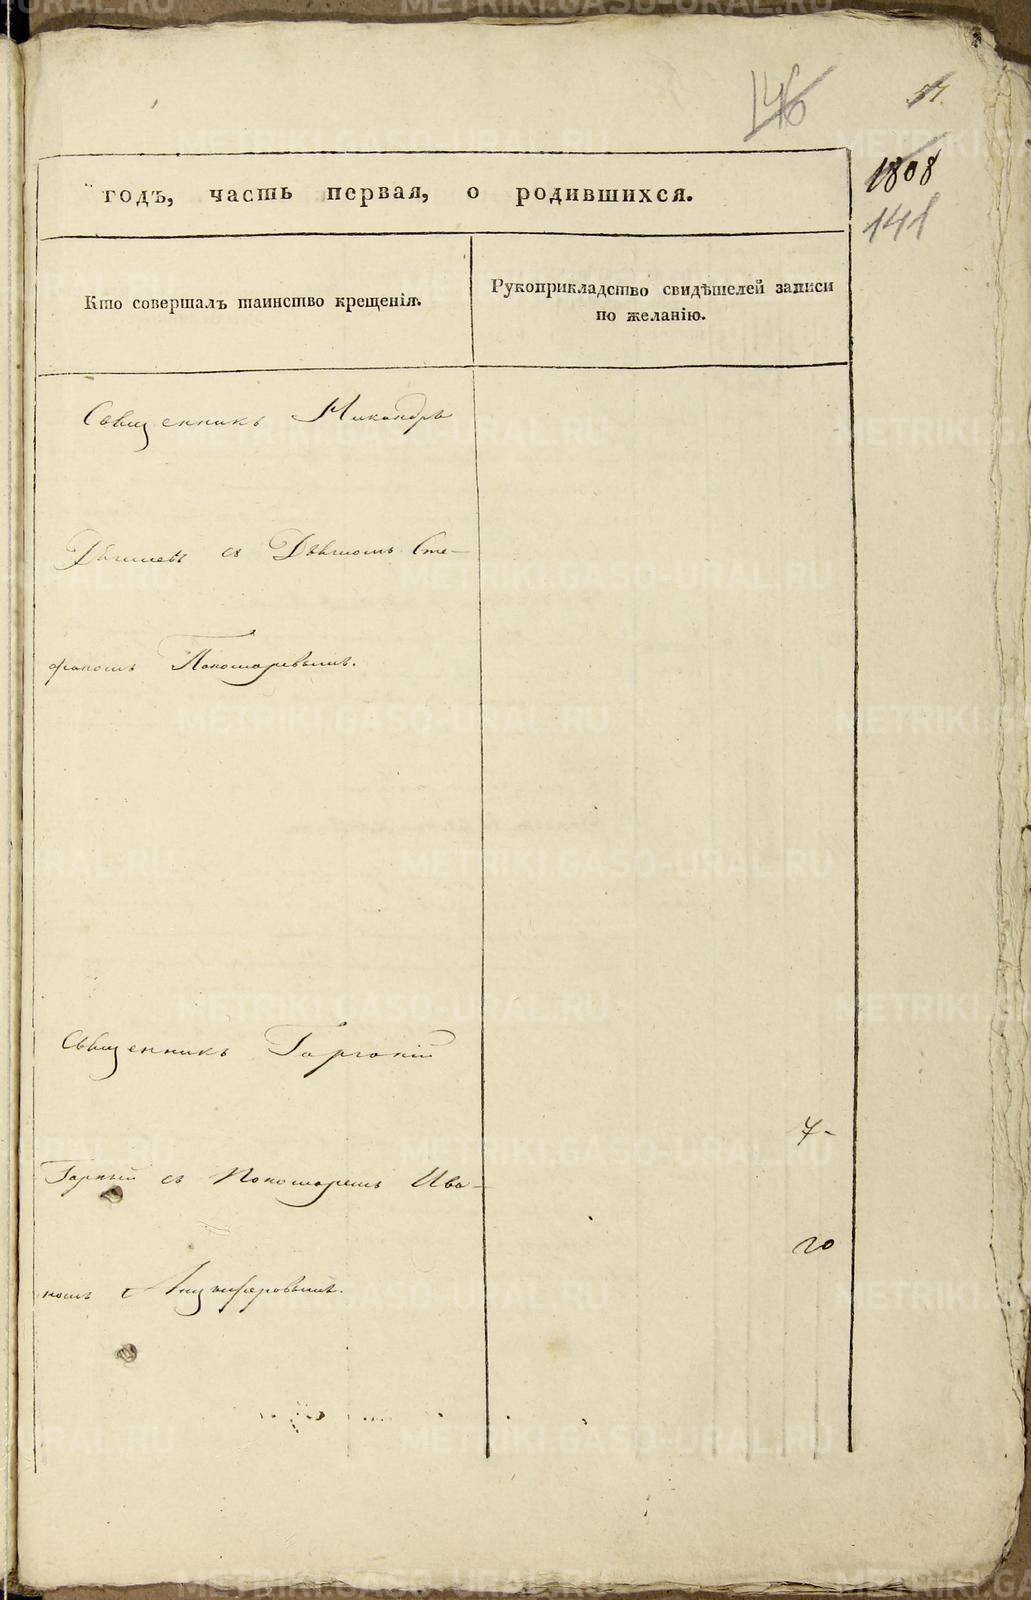 146
51.
1808
141
годъ, часть первая, о родившихся.
Кто совершалъ таинство крещенія.
Рукоприкладство свидѣтелей записи
по желанію.
Священникъ Никандръ
съ Дьячкомъ Сте-
фаномъ Пономаревымъ.
Священникъ Горгоній
7-
Горный съ Пономаремъ Ива-
20
номъ Анциферовымъ.
METRIKI.GASO-URAL.RU